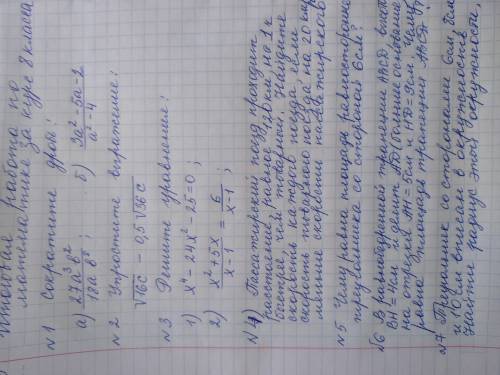 Итоговая работа по
математике за курс 8 класса
N1 Сократите дробь:
а) 27a³b²/18ab³; б) 3a²-5a-2/a²-4
N2 Упростите выражение:
√16c - 0,5√36c
N3 Решите уравнения:
1) x⁴-24x²-25=0;
2) x²+5x/x-1 = 6/x-1;
N4) Пассажирский поезд проходит
расстояние, равное на 1ч
быстрее, чем товарный. Найдите
скорость каждого поезда, если
скорость товарного поезда на 20 км/ч
меньше скорости пассажирского
N5 Чему равна площадь равностороннего
треугольника со стороной 6см?
N6 В равнобедренной трапеции ABCD,
BH=4см и делит AD (большее основание)
на отрезки AH=5см и HD=9см. Чему
равна площадь трапеции ABCD?
N7 Треугольник со сторонами 6см, 8см
и 10см вписан в окружность
Найти радиус этой окружности,